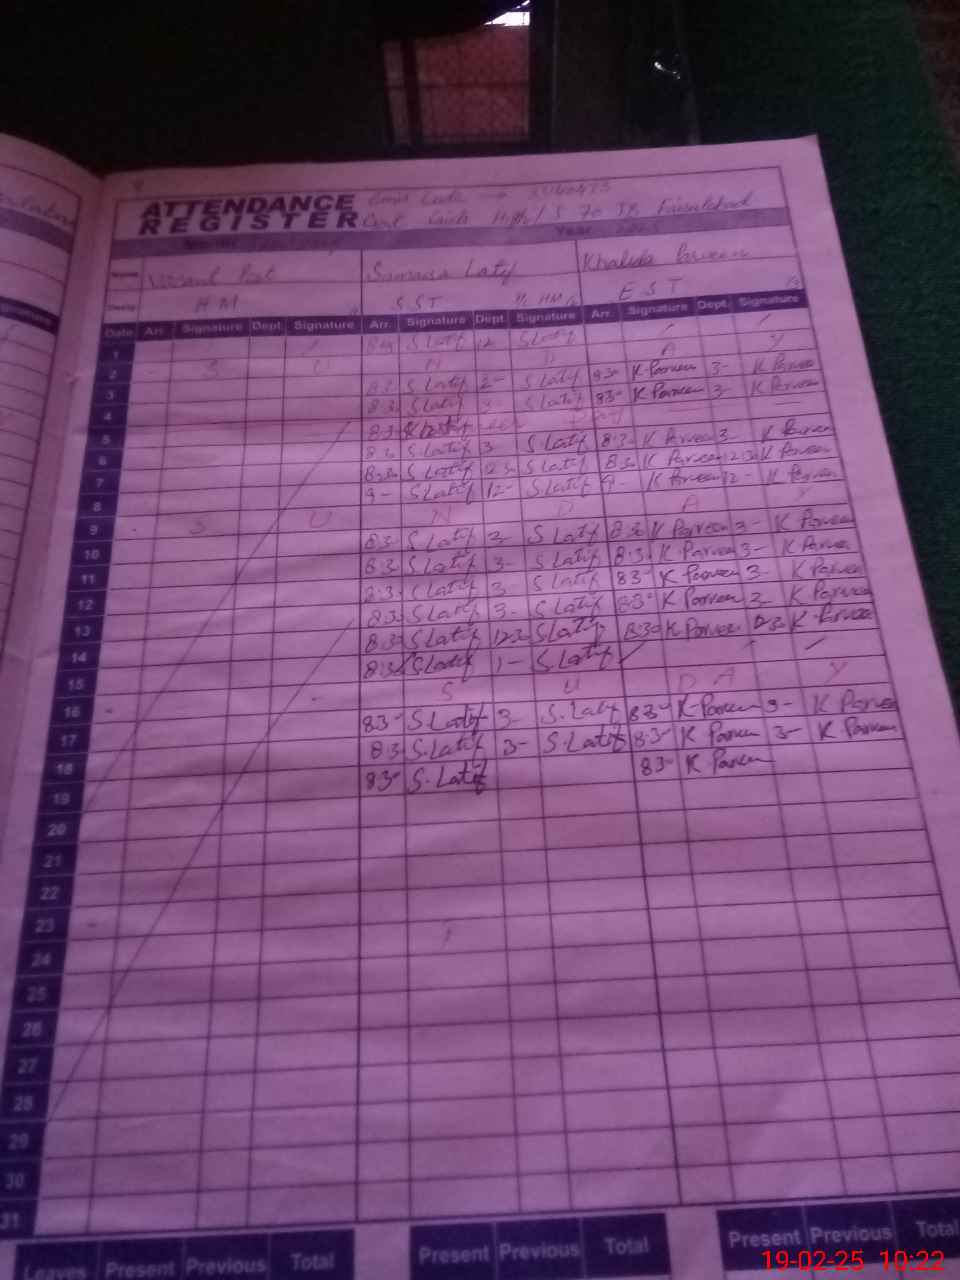 ATTENDANCE
REGISTER Govt Girls High / S 70 JB Faisalabad
Year
Name Vacant Post Sumaira Latif Khalida Parveen
HM SST I/C HM EST
Date Arr. Signature Dept. Signature Arr. Signature Dept. Signature Arr. Signature Dept. Signature
1 S Latif 12 S Latif
2 S U N D A Y
3 S Latif 2- S Latif 83- K Parveen 3- K Parveen
4 8.3 S Latif 3- S Latif 83- K Parveen 3- K Parveen
5 8.3 Day
6 8.3 S Latif 3 S Latif 8.3- K Parveen 3- K Parveen
7 8.3. S Latif 12.3. S Latif 8.3. K Parveen 12.3. K Parveen
8 9- S Latif 12- S Latif 9- K Parveen 12- K Parveen
9 S U N D A Y
10 8.3- S Latif 3- S Latif 8.3. K Parveen 3- K Parveen
11 8.3- S Latif 3- S Latif 8.3. K Parveen 3- K Parveen
12 8.3. S Latif 3- S Latif 83- K Parveen 3- K Parveen
13 8.3. S Latif 3- S Latif 83- K Parveen 3- K Parveen
14 8.30 S Latif 12.3. S Latif 8.30 K Parveen 12.3. K Parveen
15 8.30 S Latif 1- S. Latif
16 S U D A Y
17 83- S. Latif 3- S. Latif 83- K-Parveen 3- K Parveen
18 83 S. Latif 3- S. Latif 83- K Parveen 3- K Parveen
19 83- S. Latif 83- K Parveen
20
21
22
23
24
25
26
27
28
29
30
31
Leaves Present Previous Total Present Previous Total Present Previous Total
19-02-25 10:22